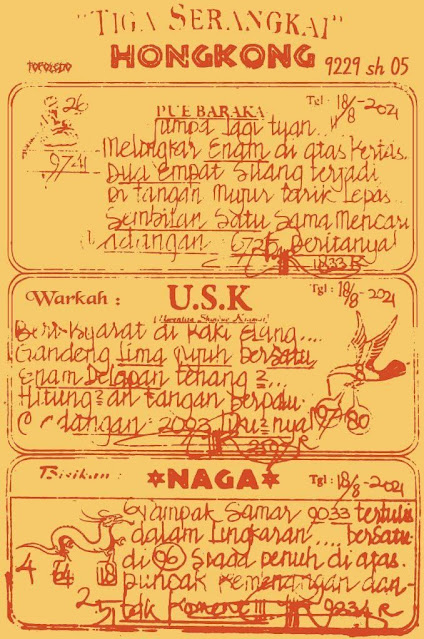 "TIGA SERANGKAI"
HONGKONG
TOPOLEDO 9229 sh 05
PUE BARAKA
Tgl : 18/8 - 2021
26
9741
jumpa lagi tuan...
Melingkar Enam di atas kertas..
Dua Empat Silang terjadi
Di tangan tarik Lepas..
Sembilan Satu Sama Mencari
6725 Beritanya
1833 R
Warkah :
U.S.K
Tgl : 18/8 - 2021
di Kaki Elang....
Gandeng Lima Tujuh bersatu
Enam Delapan tenang 2...
Hitung 2 an tangan berpadu
dangan 2093 liku 2 nya
8
97 80
Bisikan :
NAGA
Tgl : 18/8 - 2021
Nampak Samar 9033 tertulis
dalam Lingkaran.... bersatu
di 96 Spada penuh di atas.
puncak Kemenangan dan
4 64 18
25
9234 R